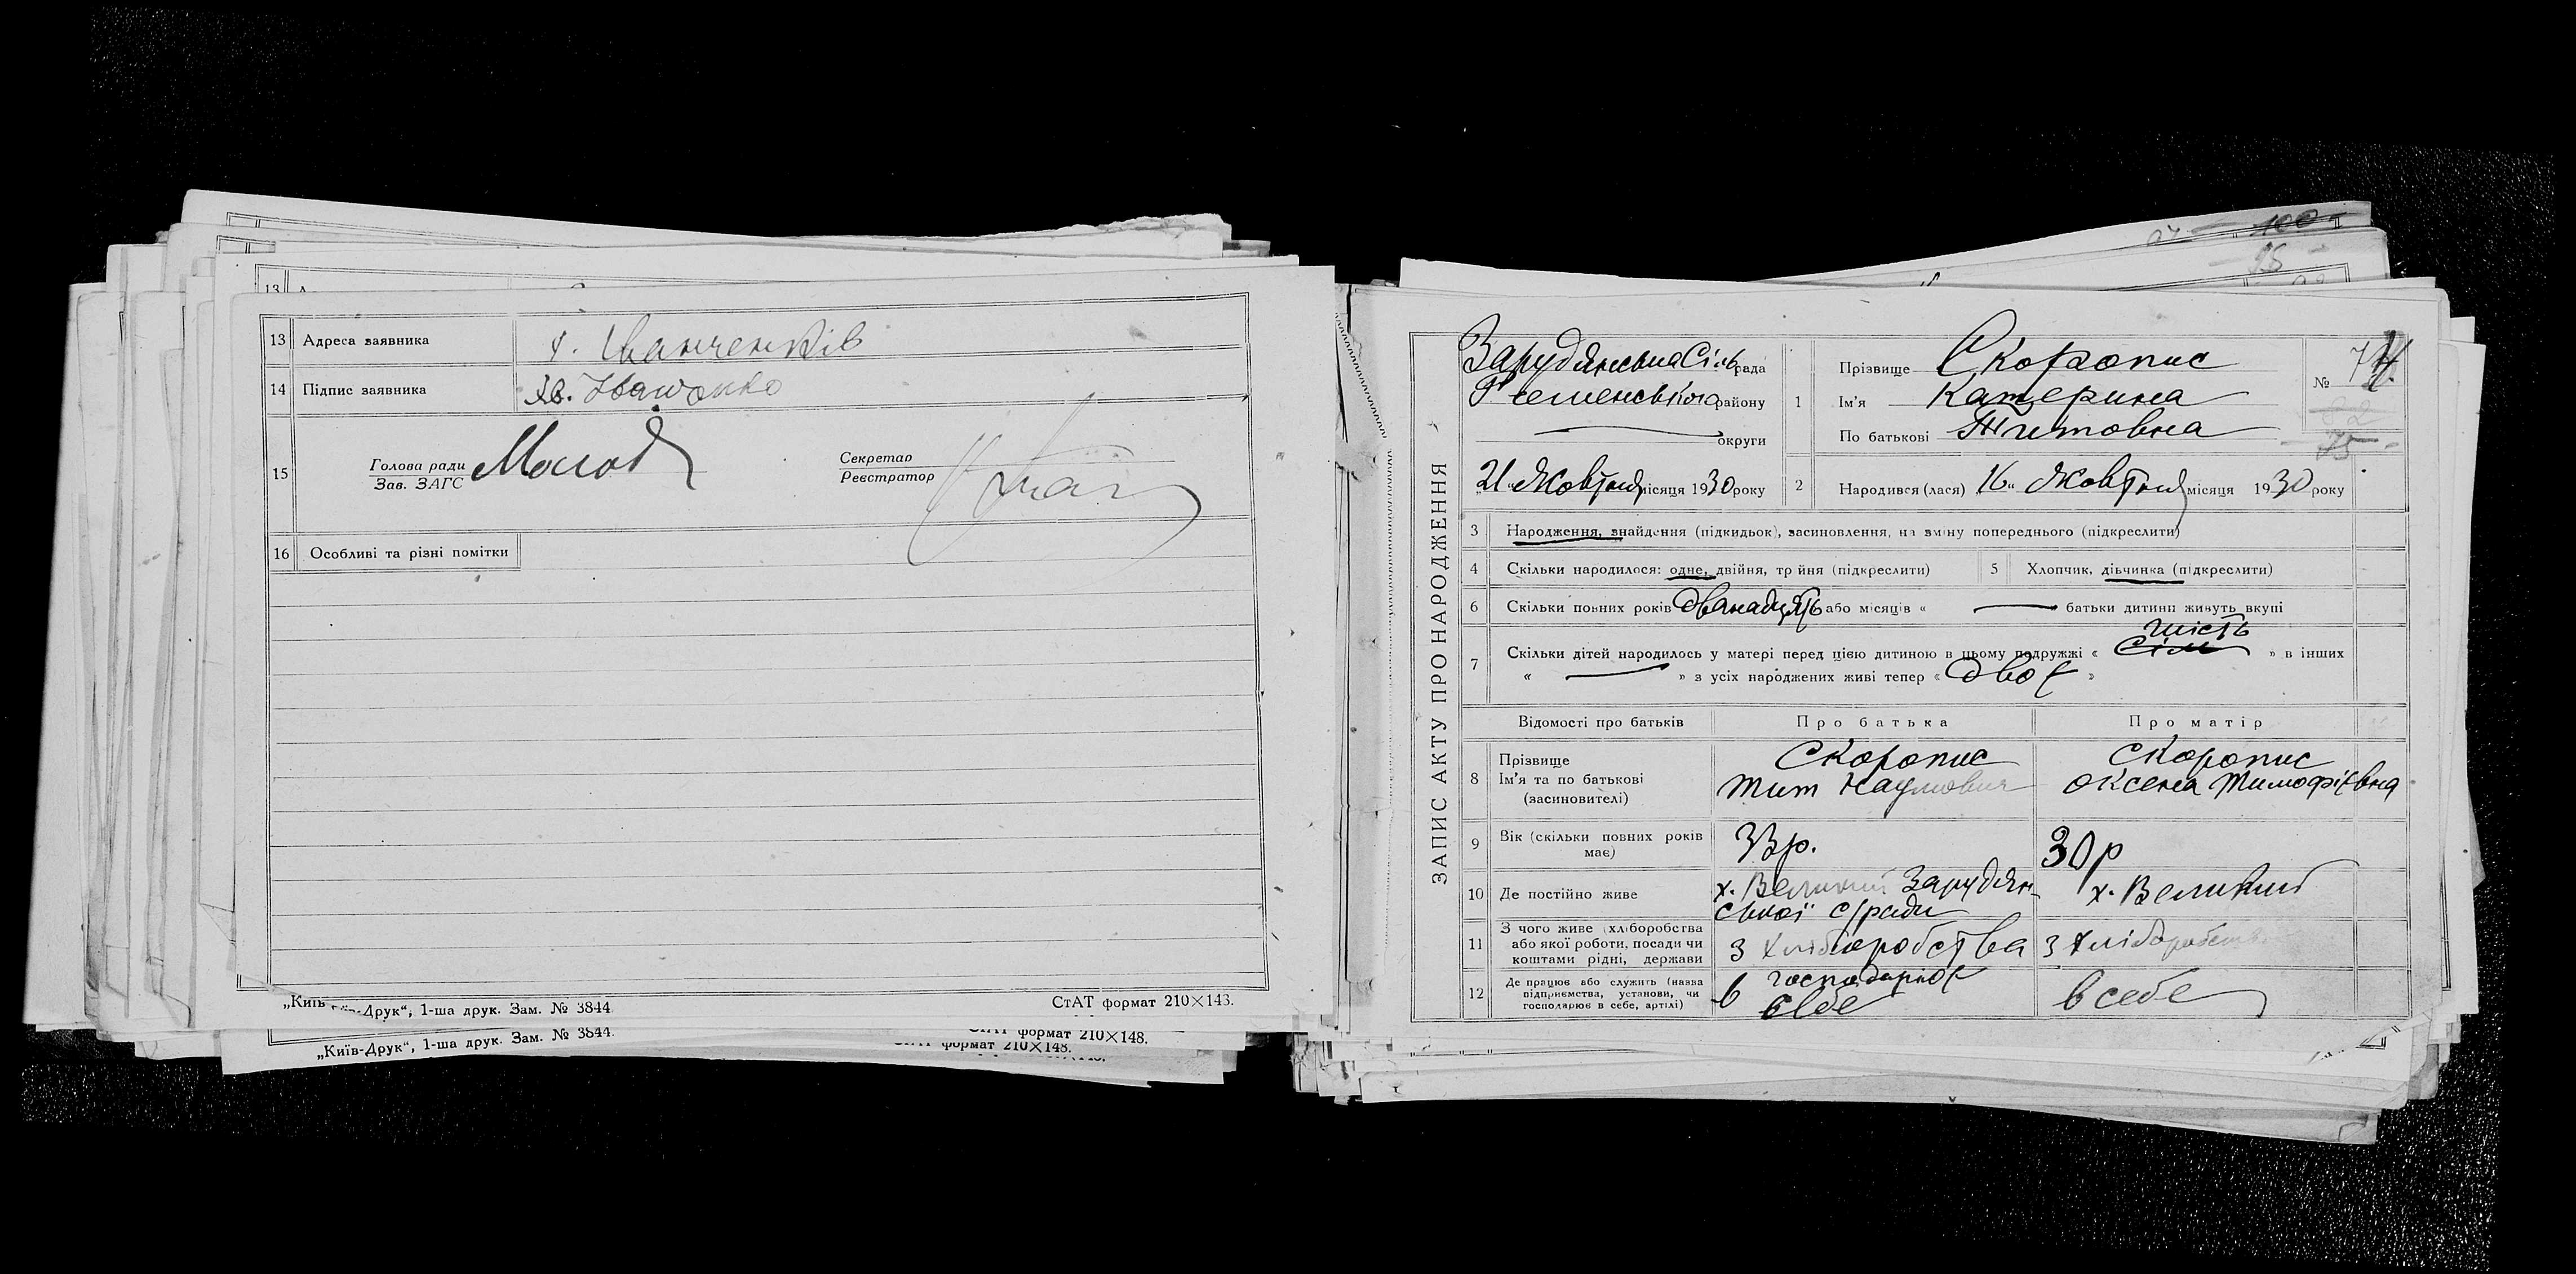 13 Адреса заявника х. Іванченків
14 Підпис заявника Ів. Іванченко
15 Голова ради
Зав. ЗАГС
Секретар
Реєстратор
16 Особливі та різні помітки
„Київ-Друк“, 1-ша друк. Зам. № 3844. СтАТ формат 210×143.
„Київ-Друк“, 1-ша друк. Зам. № 3844. СтАТ формат 210×148.
ЗАПИС АКТУ ПРО НАРОДЖЕННЯ
Заруд'янська Сіль рада
району
округи
„21“ Жовтня місяця 1930 року
1 Прізвище Скоропис
Ім'я Катерина
По батькові Титовна
№ 74
75
2 Народився (лася) „16“ Жовтня місяця 1930 року
3 Народження, знайдення (підкидьок), засиновлення, на зміну попереднього (підкреслити)
4 Скільки народилося: одне, двійня, трійня (підкреслити) 5 Хлопчик, дівчинка (підкреслити)
6 Скільки повних років дванадцять або місяців « — батьки дитини живуть вкупі
шість
7 Скільки дітей народилось у матері перед цією дитиною в цьому подружжі « сім » в інших
« — » з усіх народжених живі тепер « двоє »
Відомості про батьків Про батька Про матір
8 Прізвище Скоропис Скоропис
Ім'я та по батькові Тит Наумович Оксена Тимофієвна
(засновителі)
9 Вік (скільки повних років має) 33 р. 30 р
10 Де постійно живе х. Великий Заруд'ян- х. Великий
ської с/ради
11 З чого живе (хліборобства
або якої роботи, посади чи
коштами рідні, держави з хліборобства з хліборобства
12 Де працює або служить (назва
підприємства, установи, чи
господарює в себе, артілі) в господарює в себе
себе